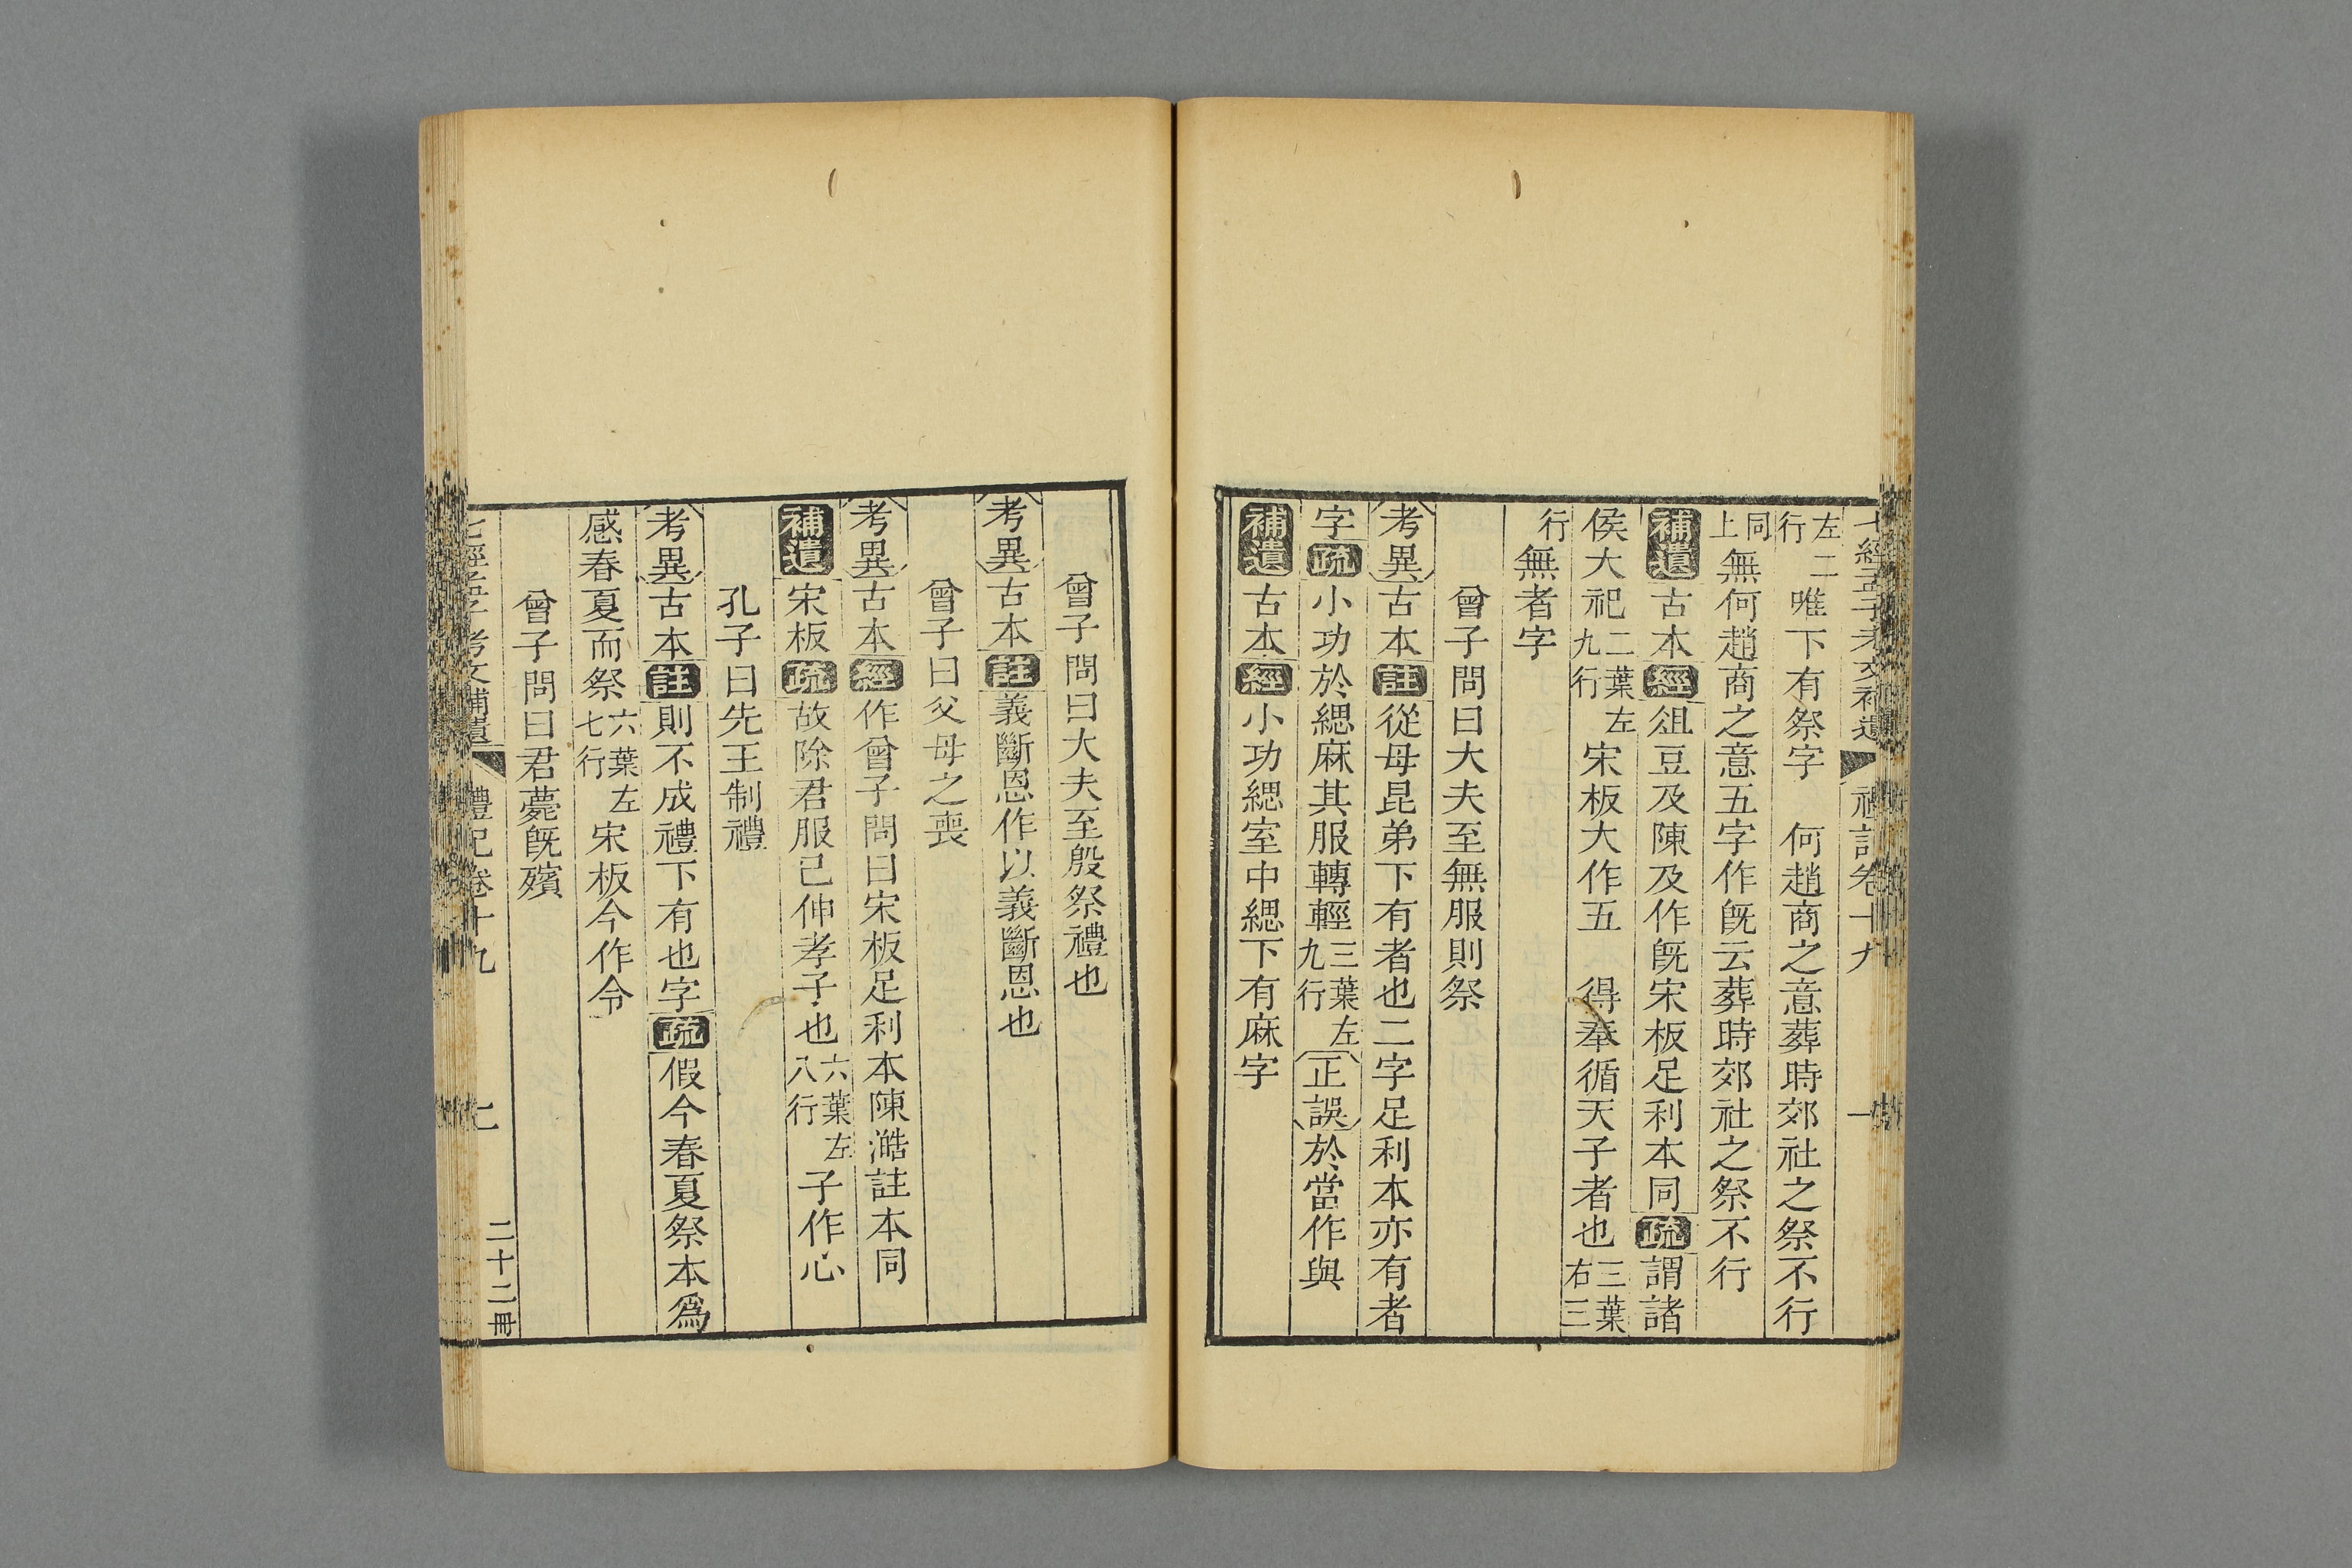 七經孟子考文補遺 禮記卷十九
左二行唯下有祭字 何趙商之意葬時郊社之祭不行
同上無何趙商之意五字作既云葬時郊社之祭不行
補遺古本經俎豆及陳及作既宋板足利本同疏謂諸
侯大祀二葉左九行宋板大作五 得奉循天子者也三葉右三
行無者字
曾子問曰大夫至無服則祭
考異古本註從母昆弟下有者也二字足利本亦有者
字疏小功於緦麻其服轉輕三葉左九行正誤於當作與
補遺古本經小功緦室中緦下有麻字
曾子問曰大夫至殷祭禮也
考異古本註義斷恩作以義斷恩也
曾子曰父母之喪
考異古本經作曾子問曰宋板足利本陳澔註本同
補遺宋板疏故除君服己伸孝子也六葉左八行子作心
孔子曰先王制禮
考異古本註則不成禮下有也字疏假令春夏祭本爲
感春夏而祭六葉左七行宋板今作令
曾子問曰君薨既殯
七經孟子考文補遺 禮記卷十九 二十二冊